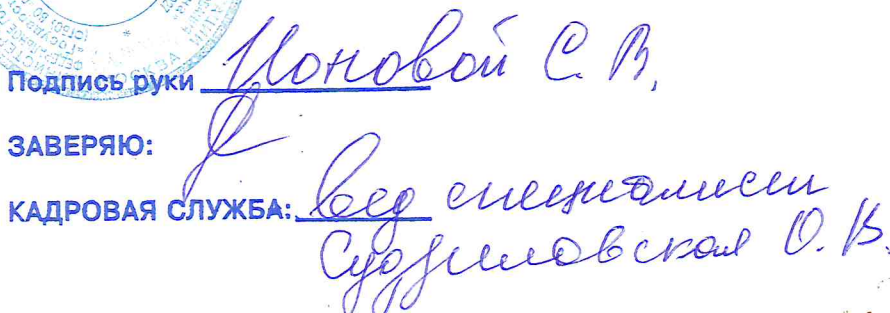 Подпись руки Ионовой С. В.
ЗАВЕРЯЮ:
КАДРОВАЯ СЛУЖБА: Вед специалист
О. В.